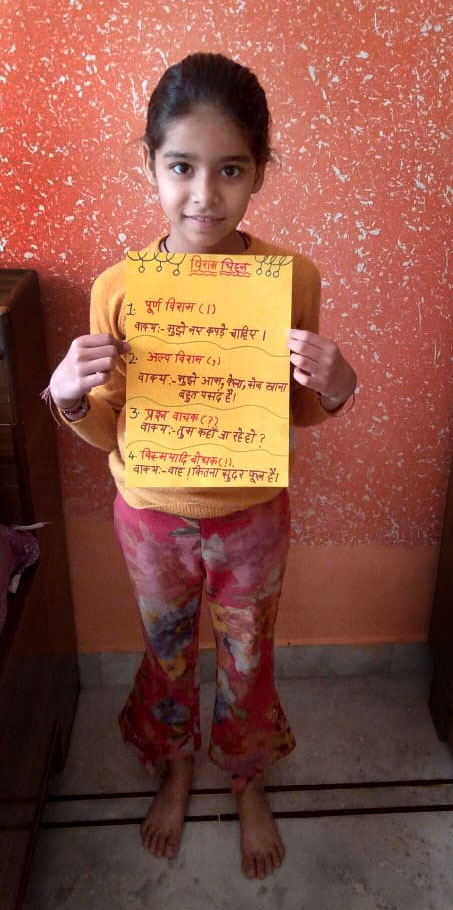 विराम चिह्न
1. पूर्ण विराम (।)
वाक्य:- मुझे नए कपड़े चाहिए ।
2. अल्प विराम (,)
वाक्य:- मुझे आम, केला, सेब खाना
बहुत पसंद है।
3. प्रश्न वाचक (?)
वाक्य:- तुम कहाँ जा रहे हो ?
4. विस्मयादि बोधक (!).
वाक्य:- वाह ! कितना सुंदर फूल है।